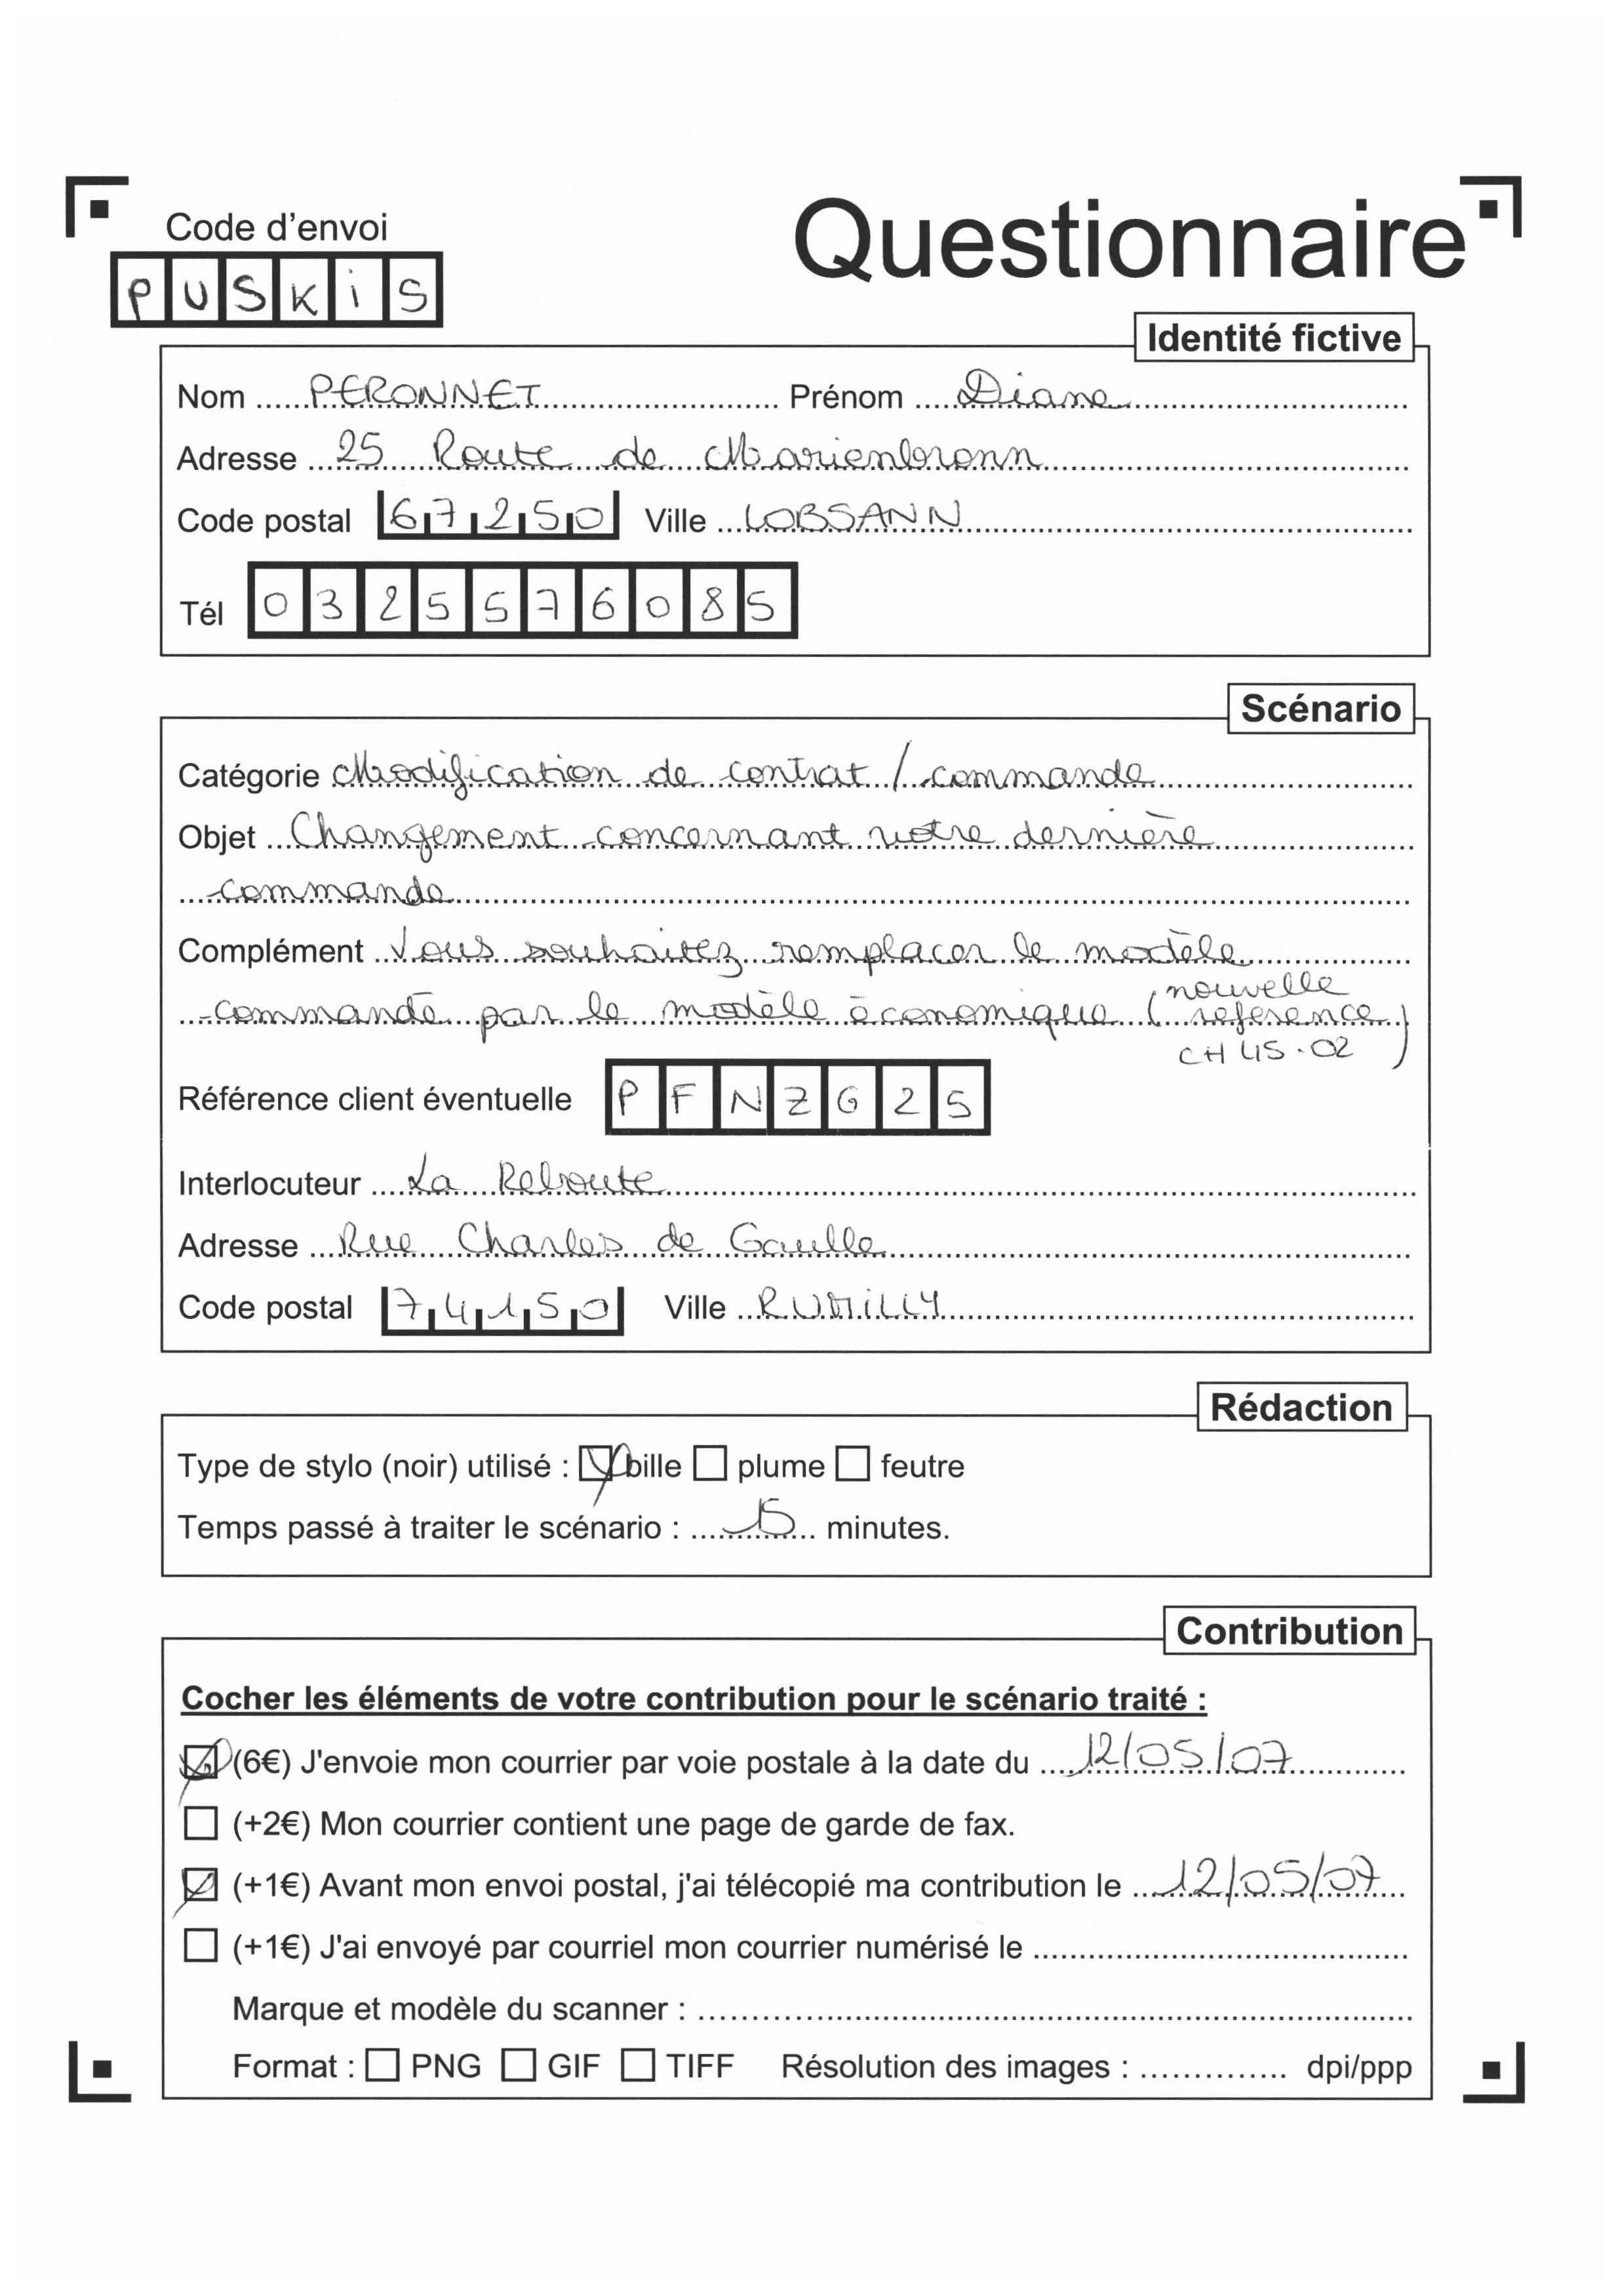 Code d'envoi
Questionnaire
PUSKiS
Identité fictive
Nom PERONNET Prénom Diane
Adresse 25 Route de Marienbronn
Code postal 67250 Ville LOBSANN
Tél 0325576085
Scénario
Catégorie Modification de contrat / commande
Objet Changement concernant votre dernière
commande
Complément Vous souhaitez remplacer le modèle
commandé par le modèle économique (nouvelle
référence)
CH 45.02
Référence client éventuelle PFNZG25
Interlocuteur La Reboute
Adresse Rue Charles de Gaulle
Code postal 74150 Ville RUMILLY
Rédaction
Type de stylo (noir) utilisé : bille plume feutre
Temps passé à traiter le scénario : 15 minutes.
Contribution
Cocher les éléments de votre contribution pour le scénario traité :
(6€) J'envoie mon courrier par voie postale à la date du 12/05/07
(+2€) Mon courrier contient une page de garde de fax.
(+1€) Avant mon envoi postal, j'ai télécopié ma contribution le 12/05/07
(+1€) J'ai envoyé par courriel mon courrier numérisé le
Marque et modèle du scanner :
Format : PNG GIF TIFF Résolution des images : dpi/ppp